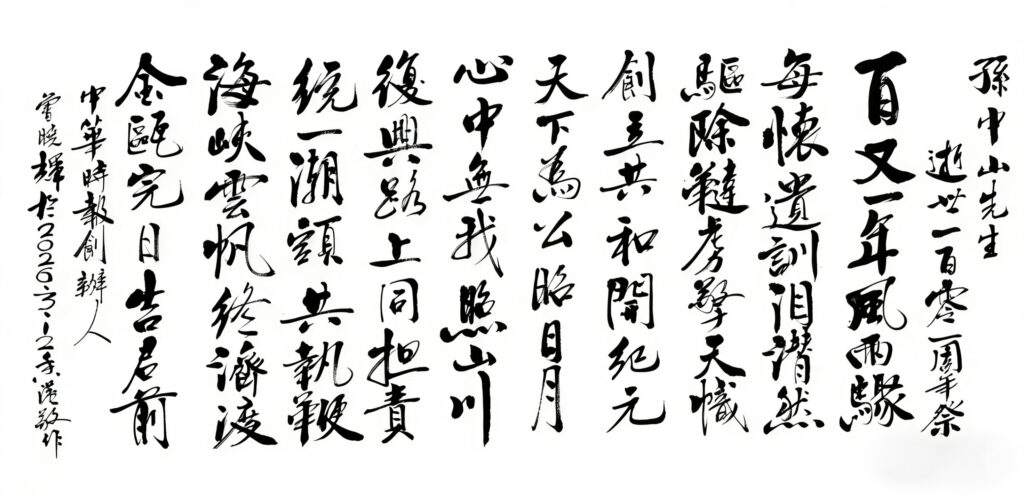 孫中山先生
逝世一百零一周年祭
百又一年風雨驟
每懷遺訓泪潸然
驅除韃虜擎天幟
創立共和開紀元
天下為公昭日月
心中無我照山川
復興路上同担責
統一潮頭共執鞭
海峽雲帆終濟渡
金甌完日告君前
中華時報創辦人
曾曉輝於2026.3.12香港敬作